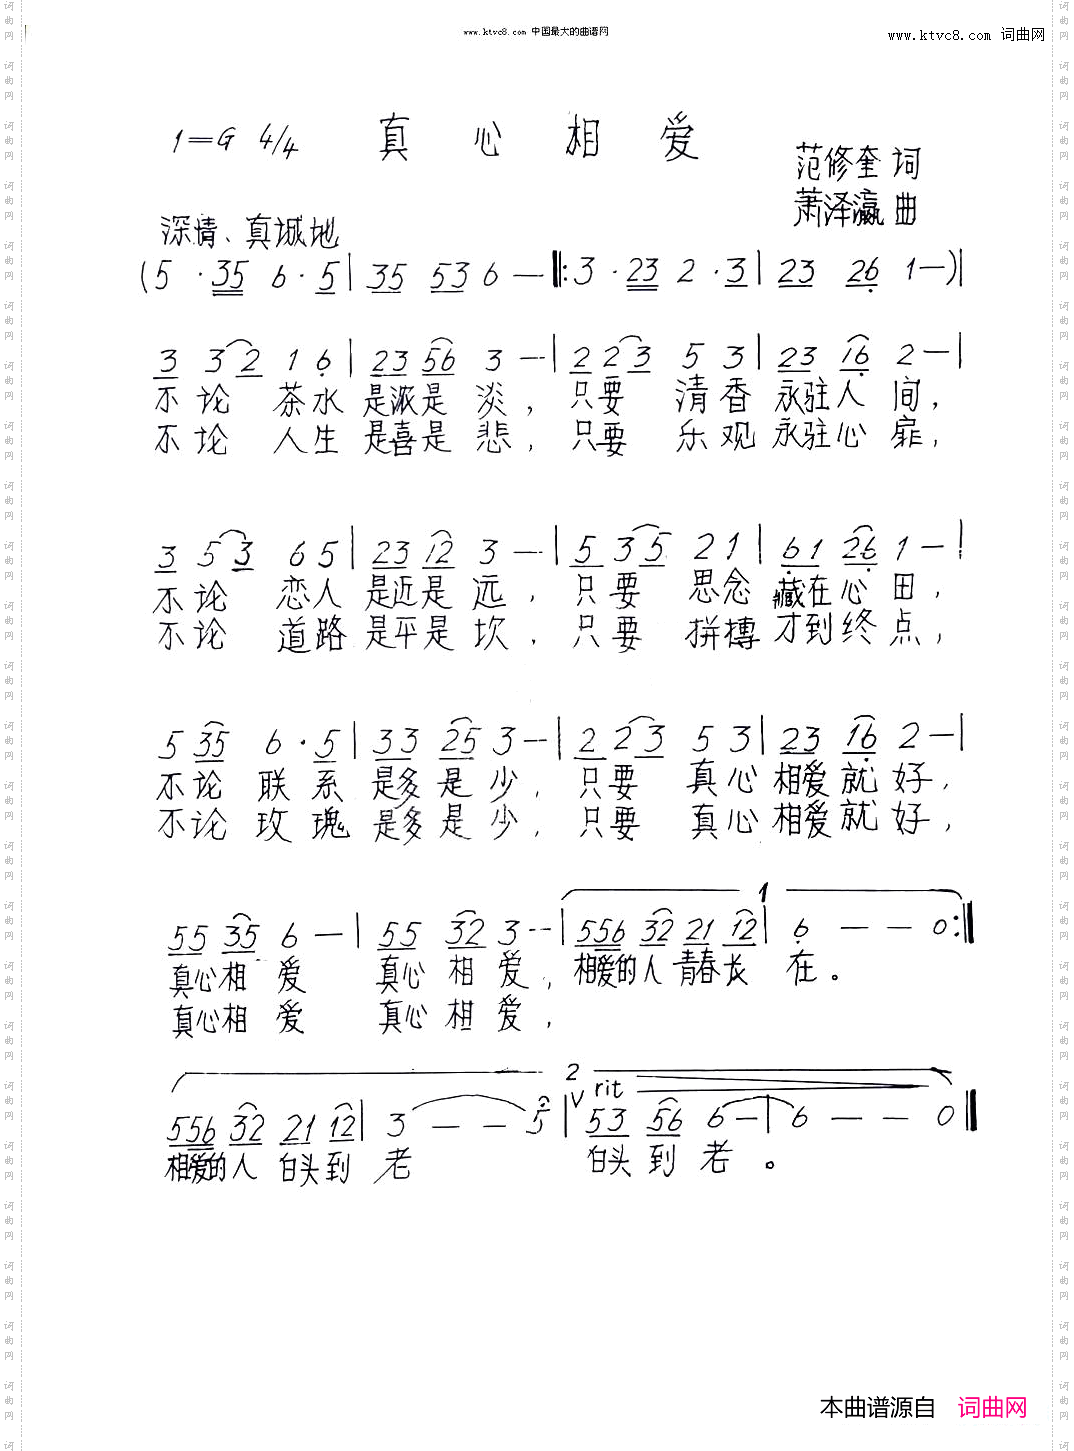 www.ktvc8.com 中国最大的曲谱网
www.ktvc8.com 词曲网
1=G 4/4 真心相爱
范修奎 词
萧泽瀛 曲
深情、真诚地
(5·35 6·5|35 53 6—‖:3·23 2·3|23 26 1—)|
3 3 2 1 6|23 56 3—|2 2 3 5 3|23 16 2—|
不论 茶水 是浓是 淡，只要 清香 永驻人 间，
不论 人生 是喜是 悲，只要 乐观 永驻心 扉，
3 5 3 6 5|23 12 3—|5 3 5 2 1|61 26 1—|
不论 恋人 是近是 远，只要 思念 藏在心 田，
不论 道路 是平是 坎，只要 拼搏 才到终 点，
5 35 6·5|33 25 3—|2 2 3 5 3|23 16 2—|
不论 联 系 是多是 少，只要 真心 相爱就 好，
不论 玫 瑰 是多是 少，只要 真心 相爱就 好，
1
55 35 6—|55 32 3—|556 32 21 12|6 — — 0:‖
真心相 爱 真心 相 爱，相爱的人 青春长 在。
真心相 爱 真心 相 爱，
2
rit
556 32 21 12|3 — — 5|V 53 56 6—|6 — — 0‖
相爱的人 白头到 老 白头 到 老。
本曲谱源自 词曲网
词曲网